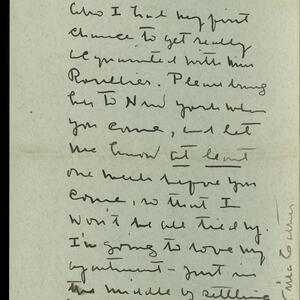 Also I had my first
chance to get really
acquainted with Miss
Please bring
her to New York when
you come, and let
me know at least
one week before you
come, so that I
won't be all tied up.
I'm going to love my
apartment - just in
the middle of settling